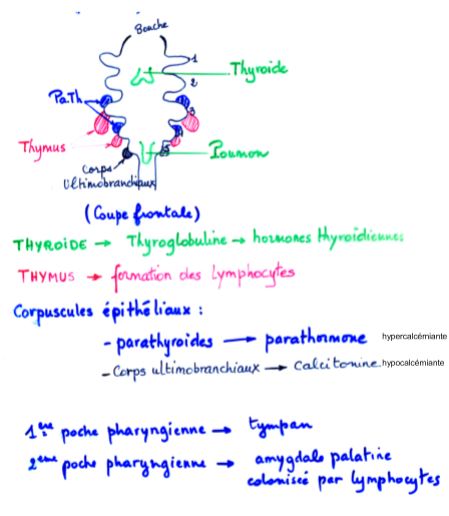 Bouche
1
Thyroide
2
Pa.Th
3
4
Thymus
5
Poumon
Corps
Ultimobranchiaux
(Coupe frontale)
THYROIDE → Thyroglobuline → hormones thyroïdiennes
THYMUS → formation des Lymphocytes
Corpuscules épithéliaux :
- parathyroides → parathormone hypercalcémiante
- Corps ultimobranchiaux → Calcitonine. hypocalcémiante
1ère poche pharyngienne → tympan
2ème poche pharyngienne → amygdale palatine
colonisée par lymphocytes